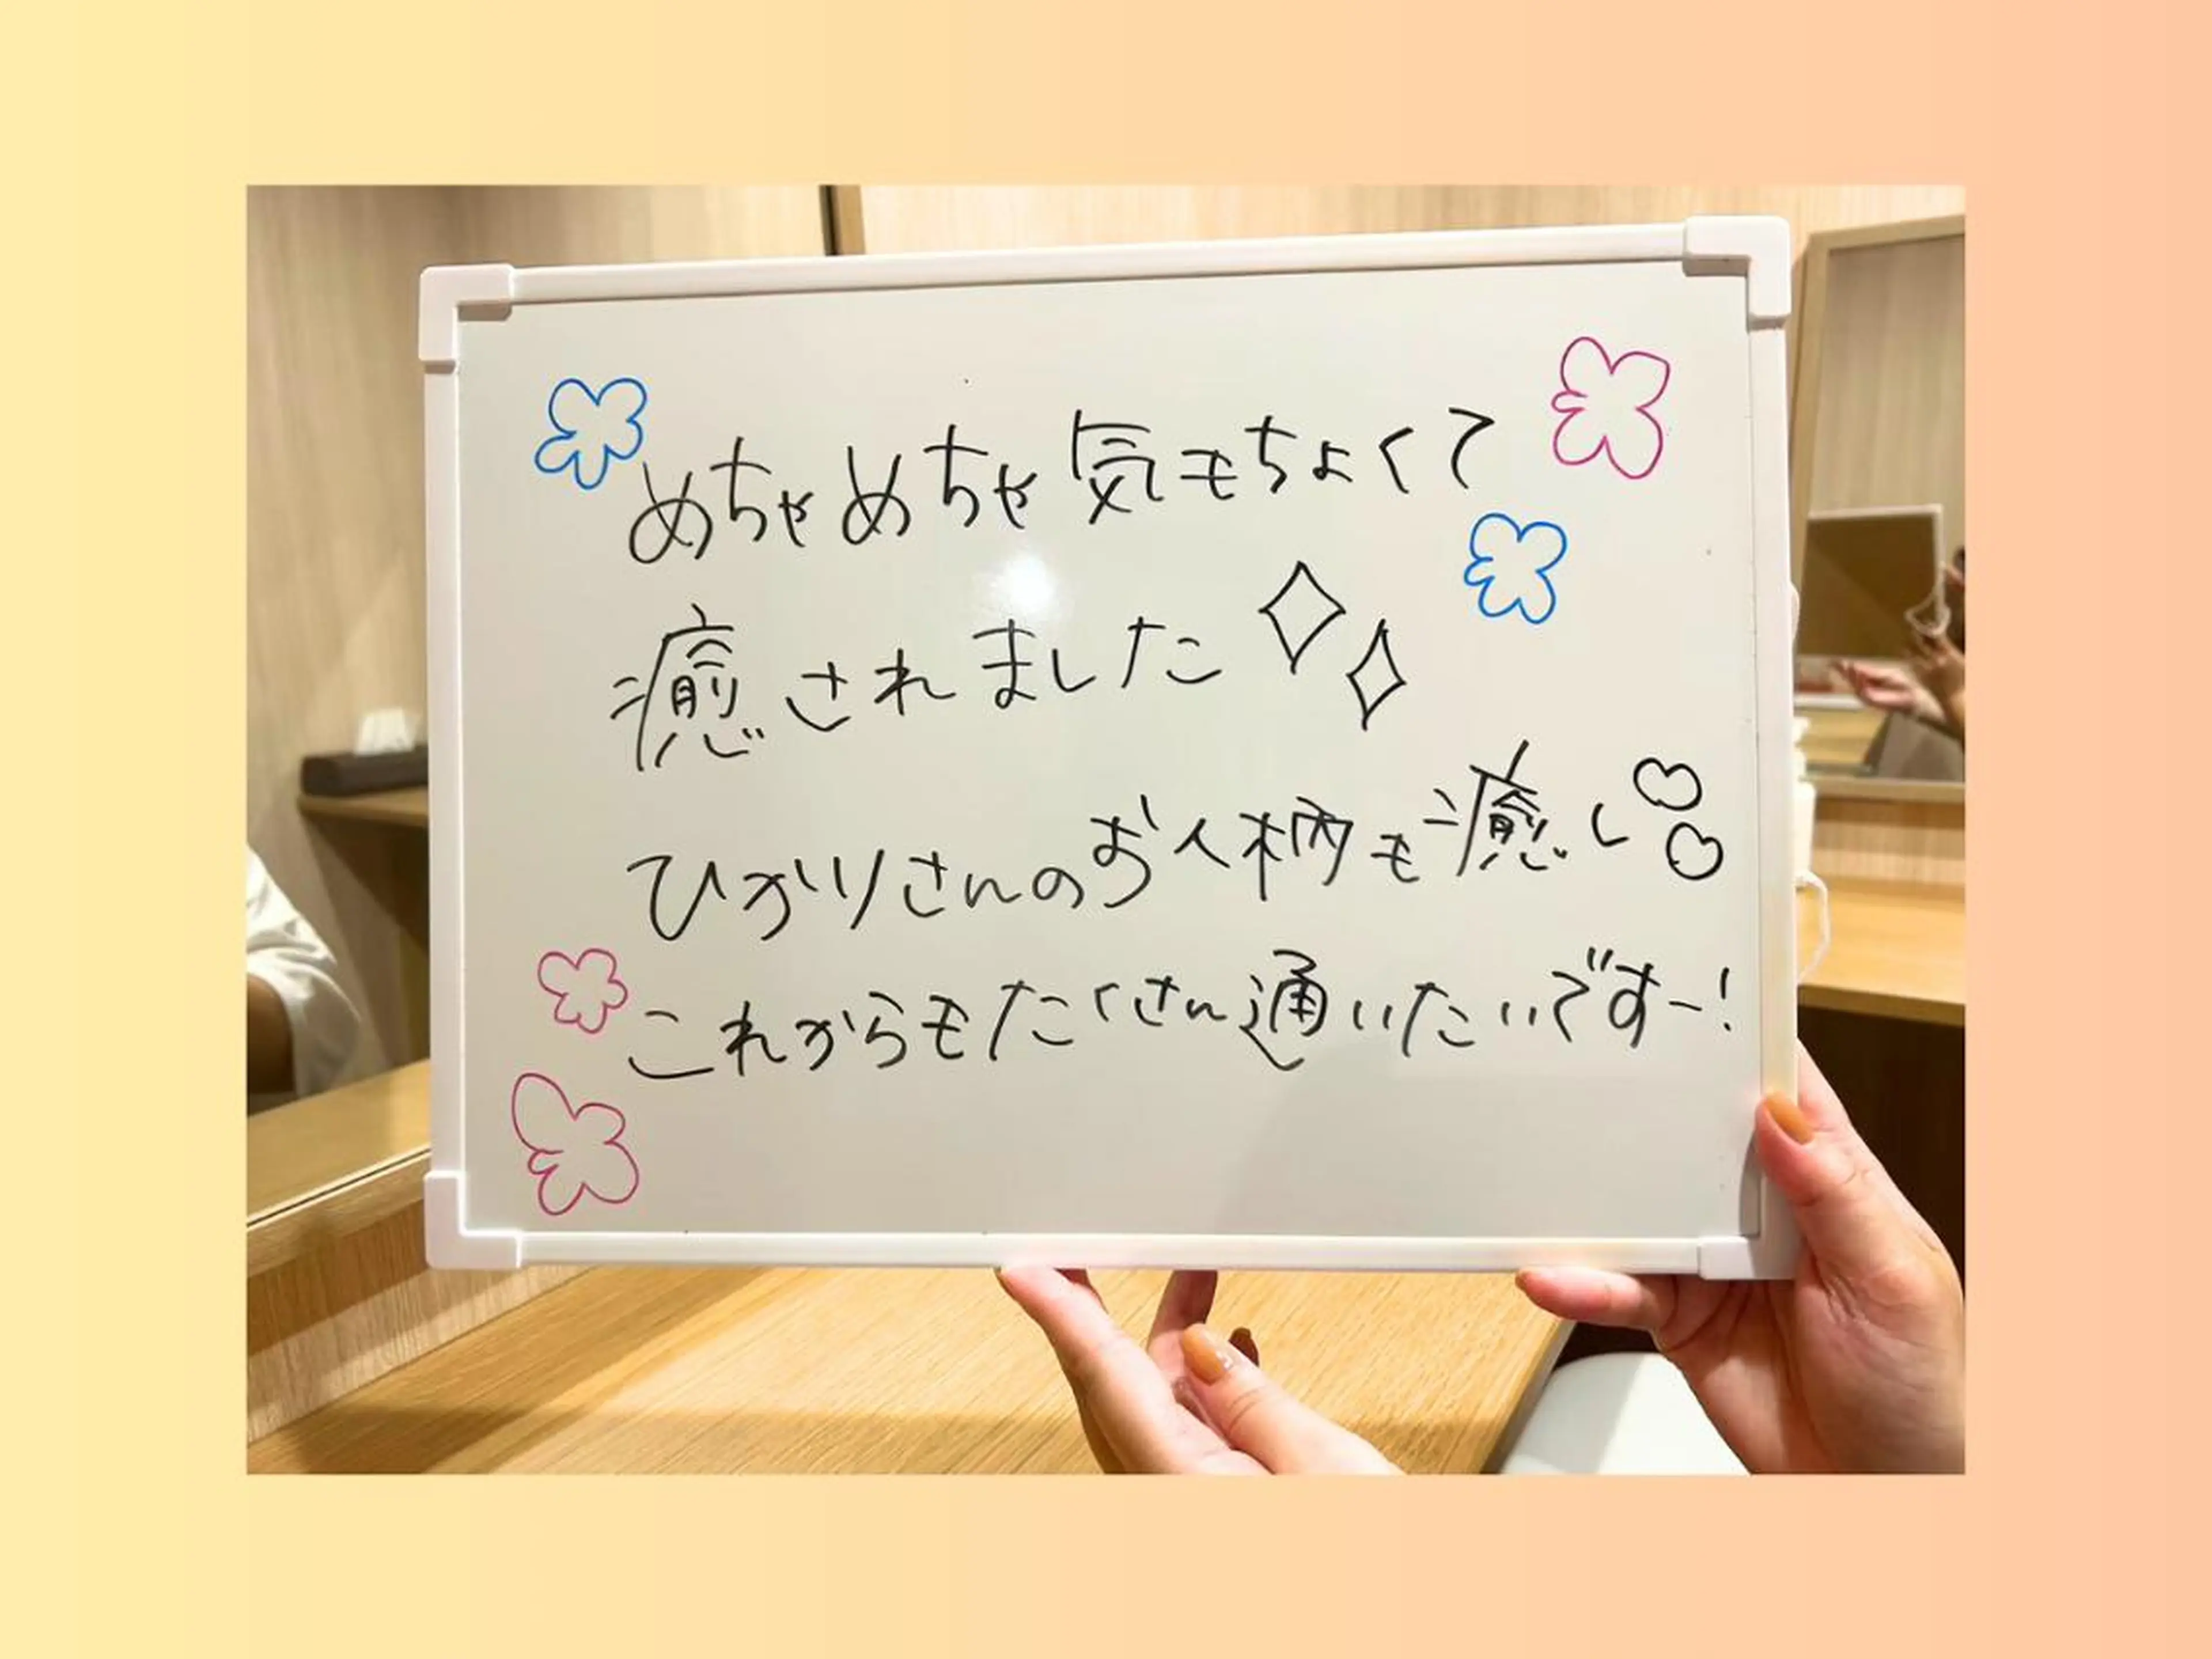 めちゃめちゃ気もちよくて
癒されました
ひかりさんのお人柄も癒し
これからもたくさん通いたいですー!